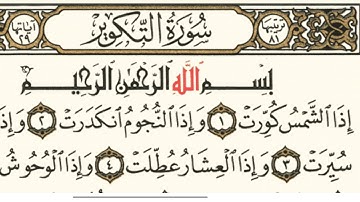 ترتيبها ٨١ سُورَةُ التَّكْوِيرِ آياتها ٢٩
بِسْمِ اللَّهِ الرَّحْمَٰنِ الرَّحِيمِ
إِذَا الشَّمْسُ كُوِّرَتْ ١ وَإِذَا النُّجُومُ انكَدَرَتْ ٢ وَإِذَا
سُيِّرَتْ ٣ وَإِذَا الْعِشَارُ عُطِّلَتْ ٤ وَإِذَا الْوُحُوشُ